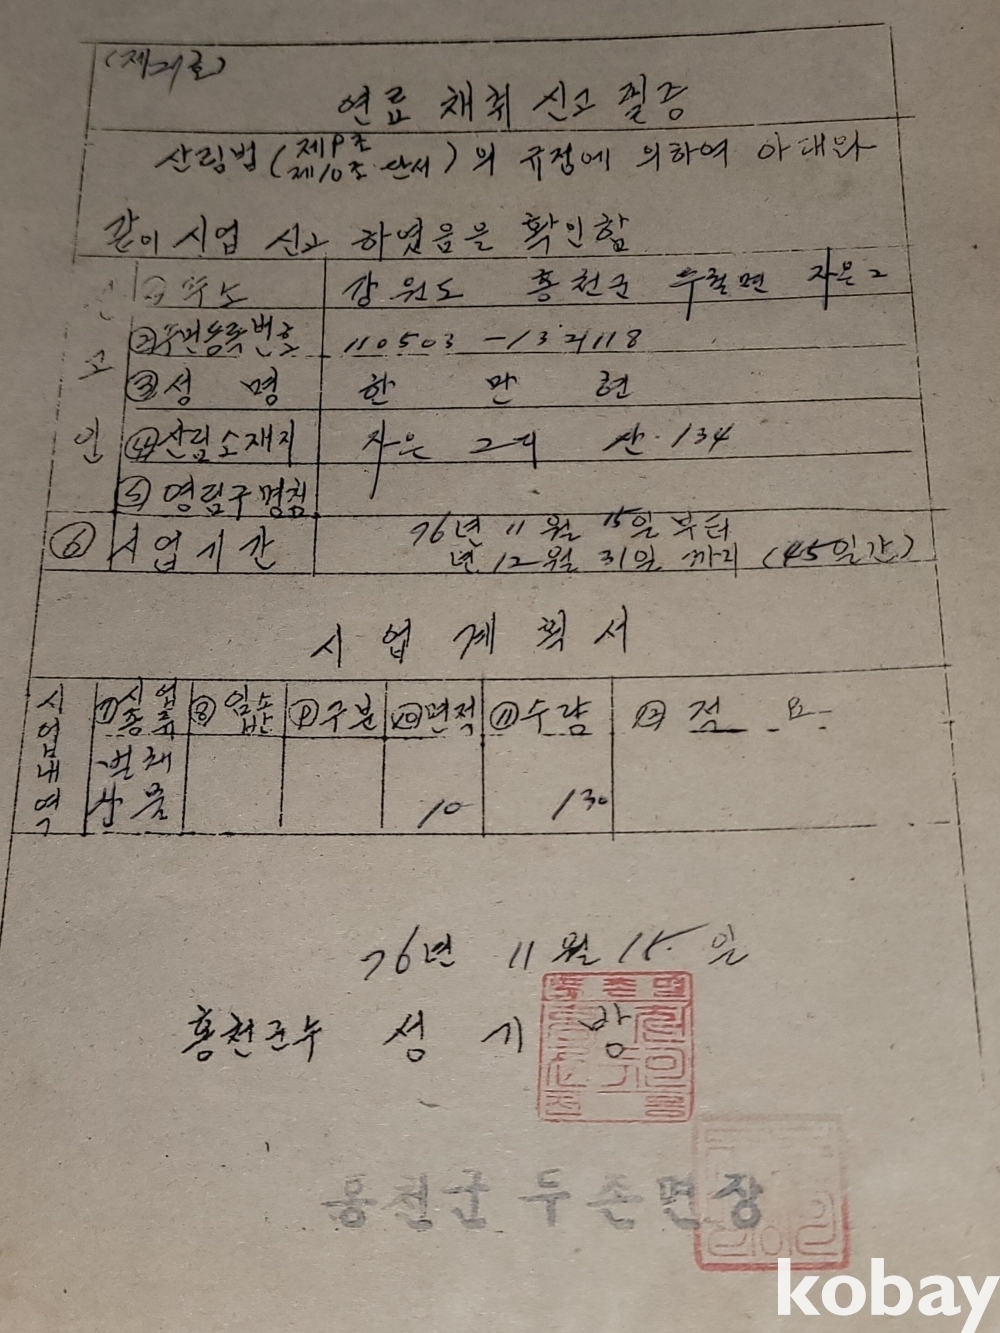 (제21호)
연료 채취 신고 필증
산림법 (제9조
제10조 단서) 의 규정에 의하여 아래와
같이 사업 신고 하였음을 확인함
신고인
① 주소 강원도 홍천군 두촌면 자은2
② 주민등록번호 110503-1321118
③ 성 명 한 만 현
④ 산림소재지 자은 2리 산 134
⑤ 영림구명칭
⑥ 사업기간 76년 11월 15일 부터
년 12월 31일 까지 (45일간)
사 업 계 획 서
사업내역 ⑦ 사업종류 ⑧ 임소반 ⑨ 구분 ⑩ 면적 ⑪ 수량 ⑫ 적 요
벌채
산물 10 130
76년 11월 15일
홍천군수 성 기 방
홍천군 두촌면장
kobay